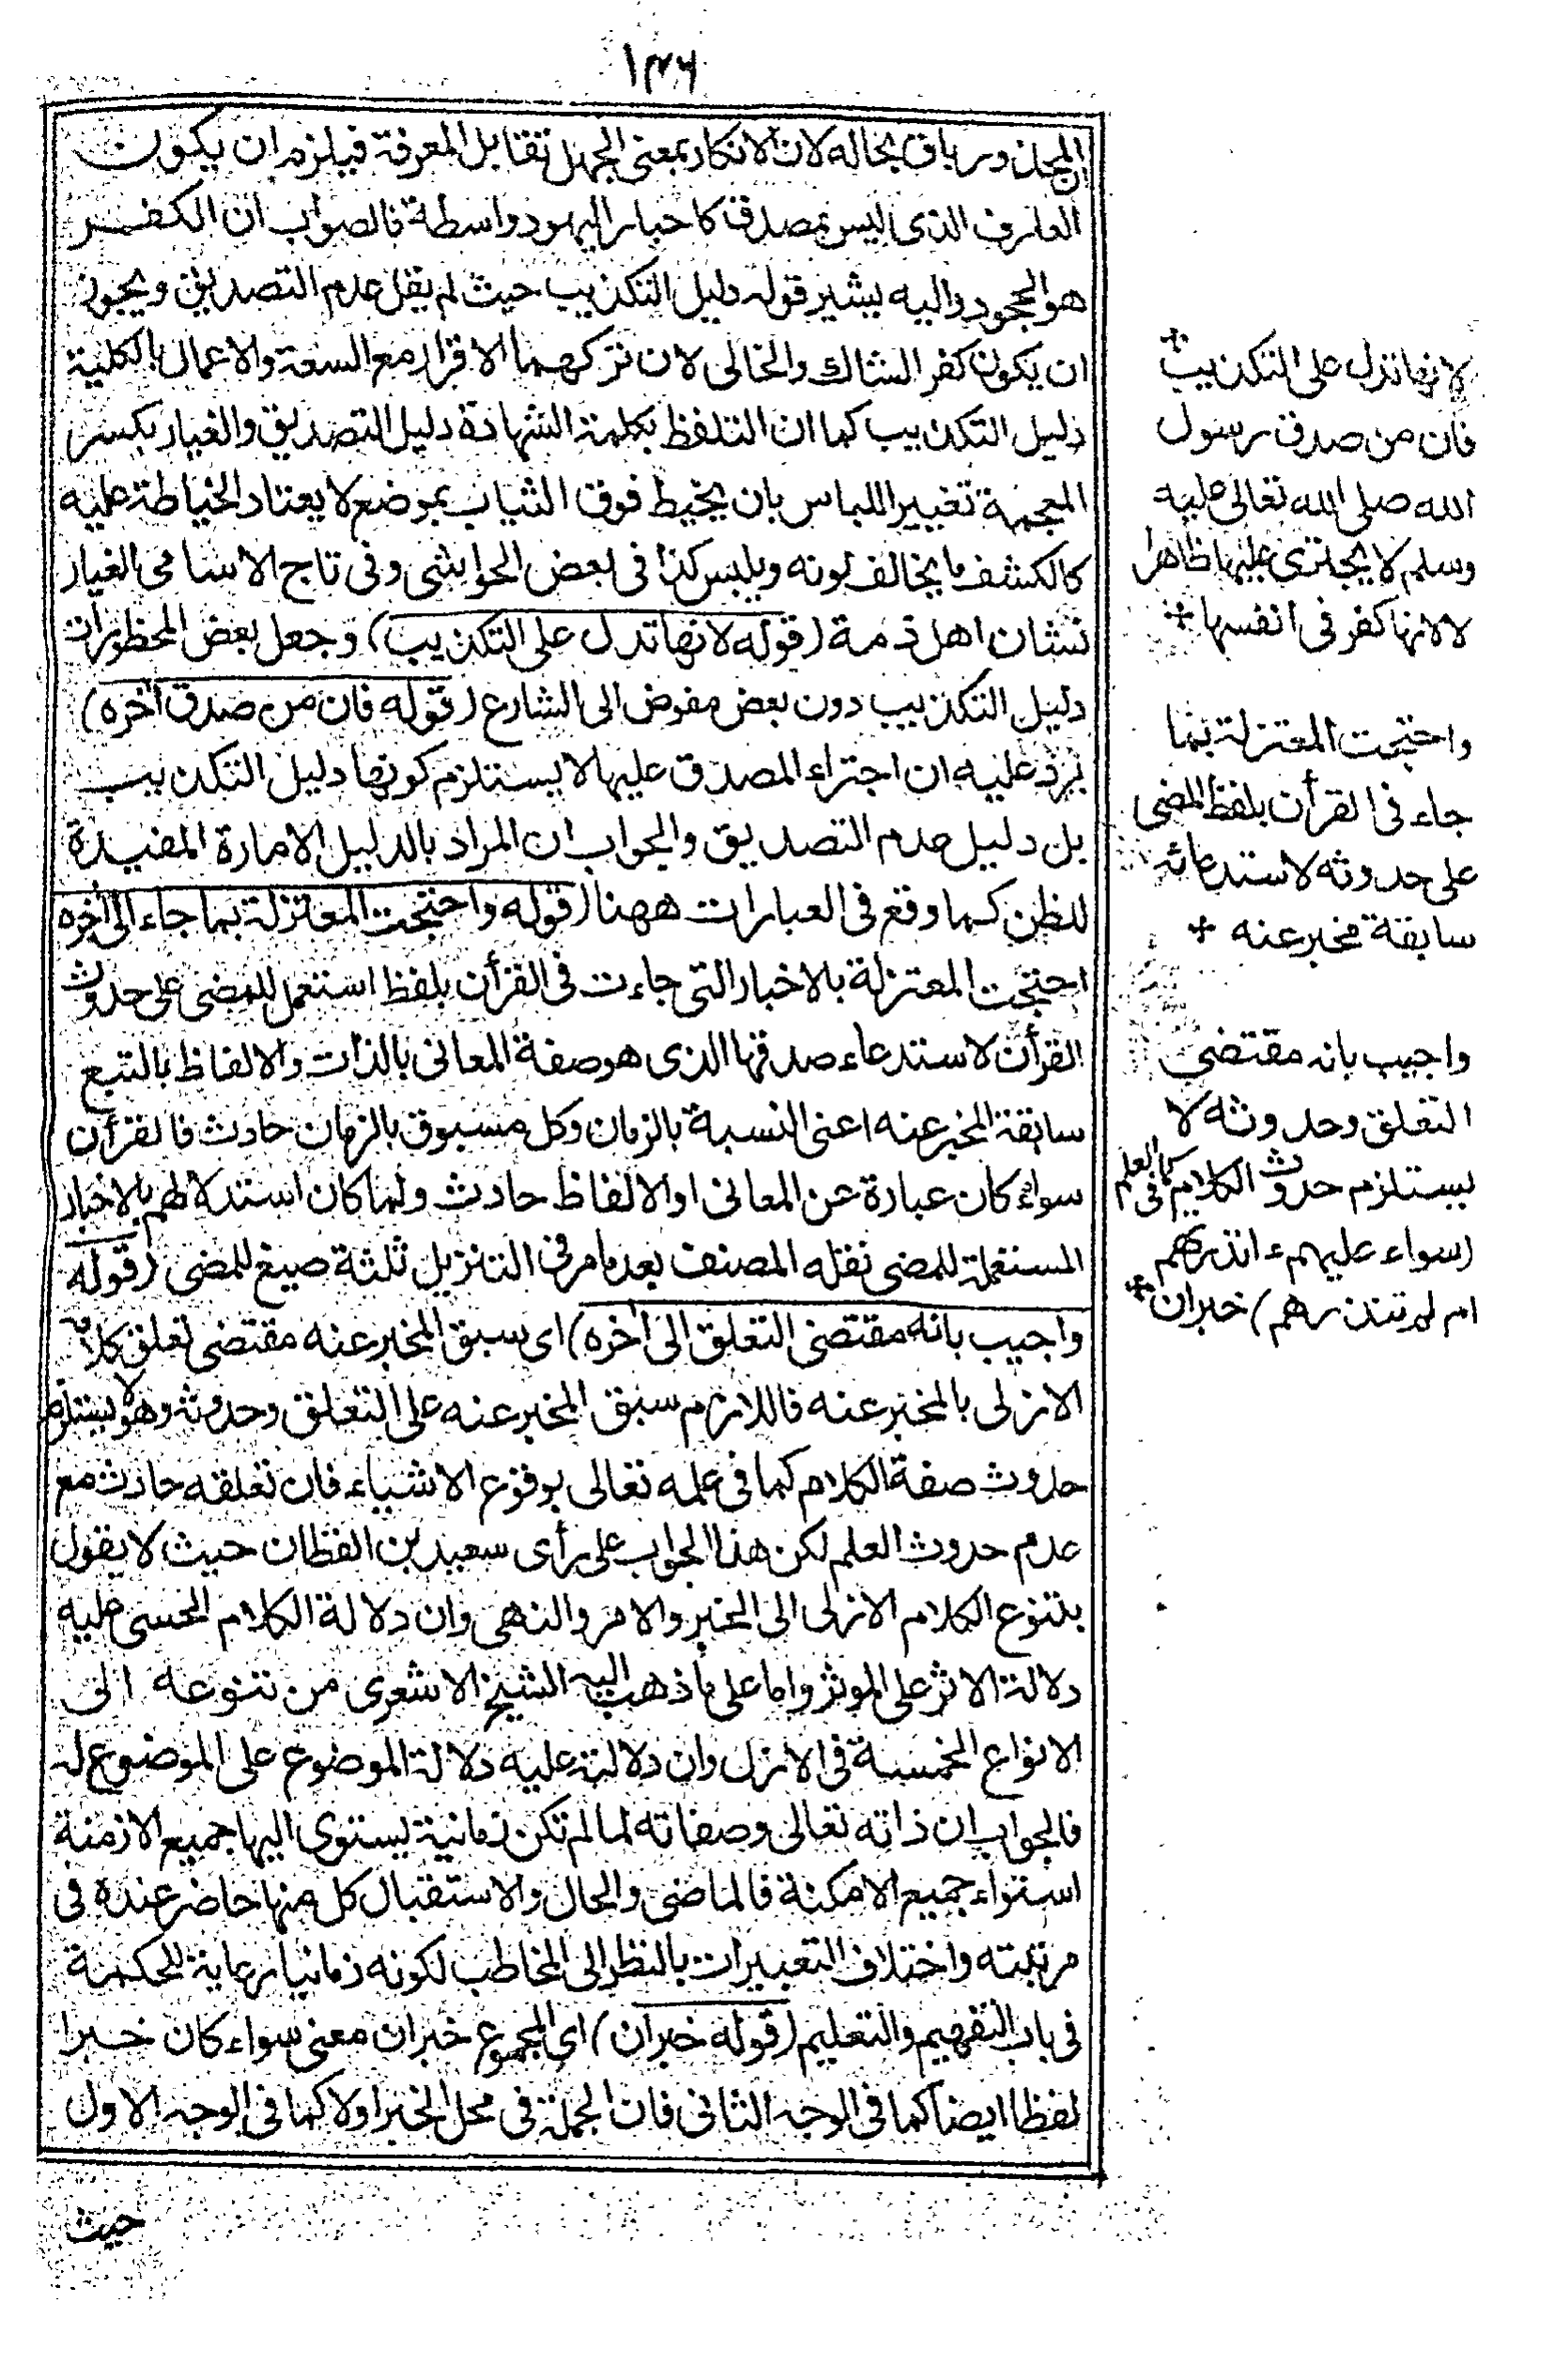 ١٣٦
المحذور باق بحاله لان الانكار بمعنى الجهل تقابل المعرفة فيلزم ان يكون
العارف الذى ليس بمصدق كاحبار اليهود واسطة فالصواب ان الكفر
هو الجحود واليه يشير قوله دليل التكذيب حيث لم يقل عدم التصديق ويجوز
ان يكون كفر الشاك والخالى لان تركهما الاقرار مع السعة والاعمال بالكلية
دليل التكذيب كما ان التلفظ بكلمة الشهادة دليل التصديق والغيار بكسر
المعجمة تغيير اللباس بان يخيط فوق الثياب بموضع لا يعتاد الخياطة عليه
كالكشف ما يخالف لونه ويلبس كذا فى بعض الحواشى وفى تاج الاسامى الغيار
نشان اهل ذمة (قوله لانها تدل على التكذيب) وجعل بعض المحظورات
دليل التكذيب دون بعض مفوض الى الشارع (قوله فان من صدق اخره)
يرد عليه ان اجتراء المصدق عليها لا يستلزم كونها دليل التكذيب
بل دليل عدم التصديق والجواب ان المراد بالدليل الامارة المفيدة
للظن كما وقع فى العبارات ههنا (قوله واحتجت المعتزلة بما جاء الى أخره
احتجت المعتزلة بالاخبار التى جاءت فى القرأن بلفظ استعمل للمضى على حدوث
القرأن لاستدعاء صدقها الذى هو صفة المعانى بالذات والالفاظ بالتبع
سابقة المخبر عنه اعنى النسبة بالزمان وكل مسبوق بالزمان حادث فالقرأن
سواء كان عبارة عن المعانى او الالفاظ حادث ولما كان استدلالهم بالاخبار
المستعملة للمضى نقله المصنف بعد ما مر فى التنزيل ثلثة صيغ للمضى (قوله
واجيب بانه مقتضى التعلق الى أخره) اى سبق المخبر عنه مقتضى تعلق كلامه
الازلى بالمخبر عنه فاللازم سبق المخبر عنه على التعلق وحدوثه وهو لا يستلزم
حدوث صفة الكلام كما فى علمه تعالى بوقوع الاشياء فان تعلقه حادث مع
عدم حدوث العلم لكن هذا الجواب على رأى سعيد بن القطان حيث لا يقول
بتنوع الكلام الازلى الى الخبر والامر والنهى وان دلالة الكلام الحسى عليه
دلالة الاثر على الموثر واما على ما ذهب اليه الشيخ الاشعرى من تنوعه الى
الانواع الخمسة فى الازل وان دلالته عليه دلالة الموضوع على الموضوع له
فالجواب ان ذاته تعالى وصفاته لما لم تكن زمانية يستوى اليها جميع الازمنة
استواء جميع الامكنة فالماضى والحال والاستقبال كل منها حاضر عنده فى
مرتبته واختلاف التعبيرات بالنظر الى المخاطب لكونه زمانيا رعاية للحكمة
فى باب التفهيم والتعليم (قوله خبران) اى المجموع خبران معنى سواء كان خبرا
لفظا ايضا كما فى الوجه الثانى فان الجملة فى محل الخبر اولا كما فى الوجه الاول
حيث
لانها تدل على التكذيب
فان من صدق رسول
الله صلى الله تعالى عليه
وسلم لا يجترى عليها ظاهرا
لا لانها كفر فى انفسها
واحتجت المعتزلة بما
جاء فى القرأن بلفظ المضى
على حدوثه لاستدعائه
سابقة مخبر عنه
واجيب بانه مقتضى
التعلق وحدوثه لا
يستلزم حدوث الكلام كما فى العلم
(سواء عليهم ءانذرتهم
ام لم تنذرهم) خبران